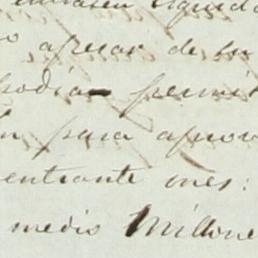 apesar de su
podia permit
para aprov
entrante mes:
medio Millone